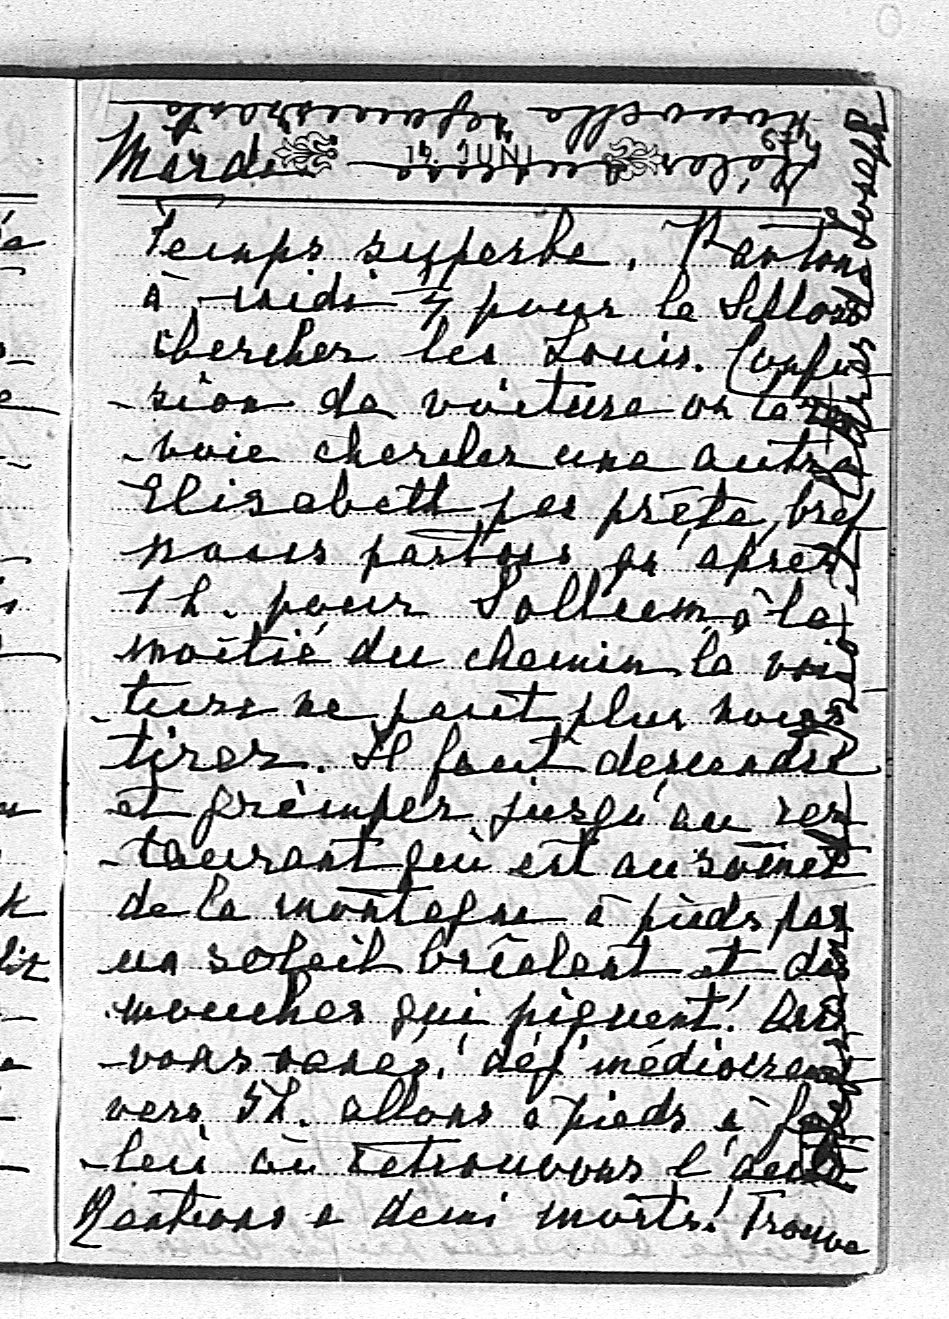 Mardi
19. JUNI
Temps superbe. Partons
à midi ½ pour le
chercher les Louis. Confu
sion de voiture on
voie chercher une autre
Elisabeth pas prête, bref
nous partons qu'après
1 h. pour à la
moitié du chemin la voi
ture ne peut plus nous
tirer. Il faut descendre
et grimper jusqu'au res
taurant qui est au somet
de la montagne à pieds par
un soleil brûlant et des
mouches qui piquent! Arri
vons déj. médiocre
vers 5h. allons à pieds à
où retrouvons l'auto
Rentrons a demi morts! Trouve
nouvelle
Joseph